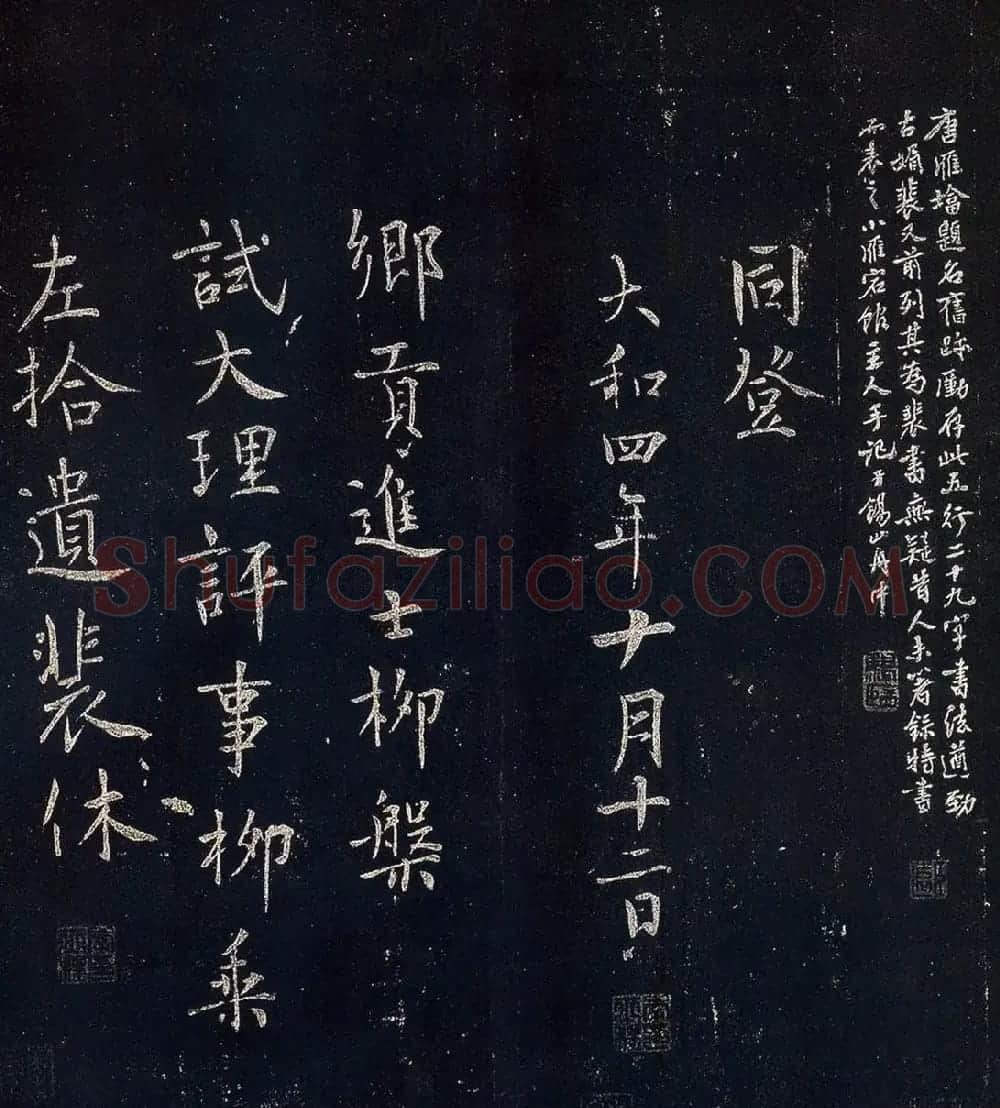 左拾遺裴休
試大理評事柳乘
鄉貢進士柳槃
大和四年十月十二日
同登
唐雁墖題名舊跡存此五行二十九字書法遒勁
古媚裴又前列其為裴書無疑昔人未著錄特書
而表之小雁宕館主人手記于錫山舟中
Shufaziliao.COM